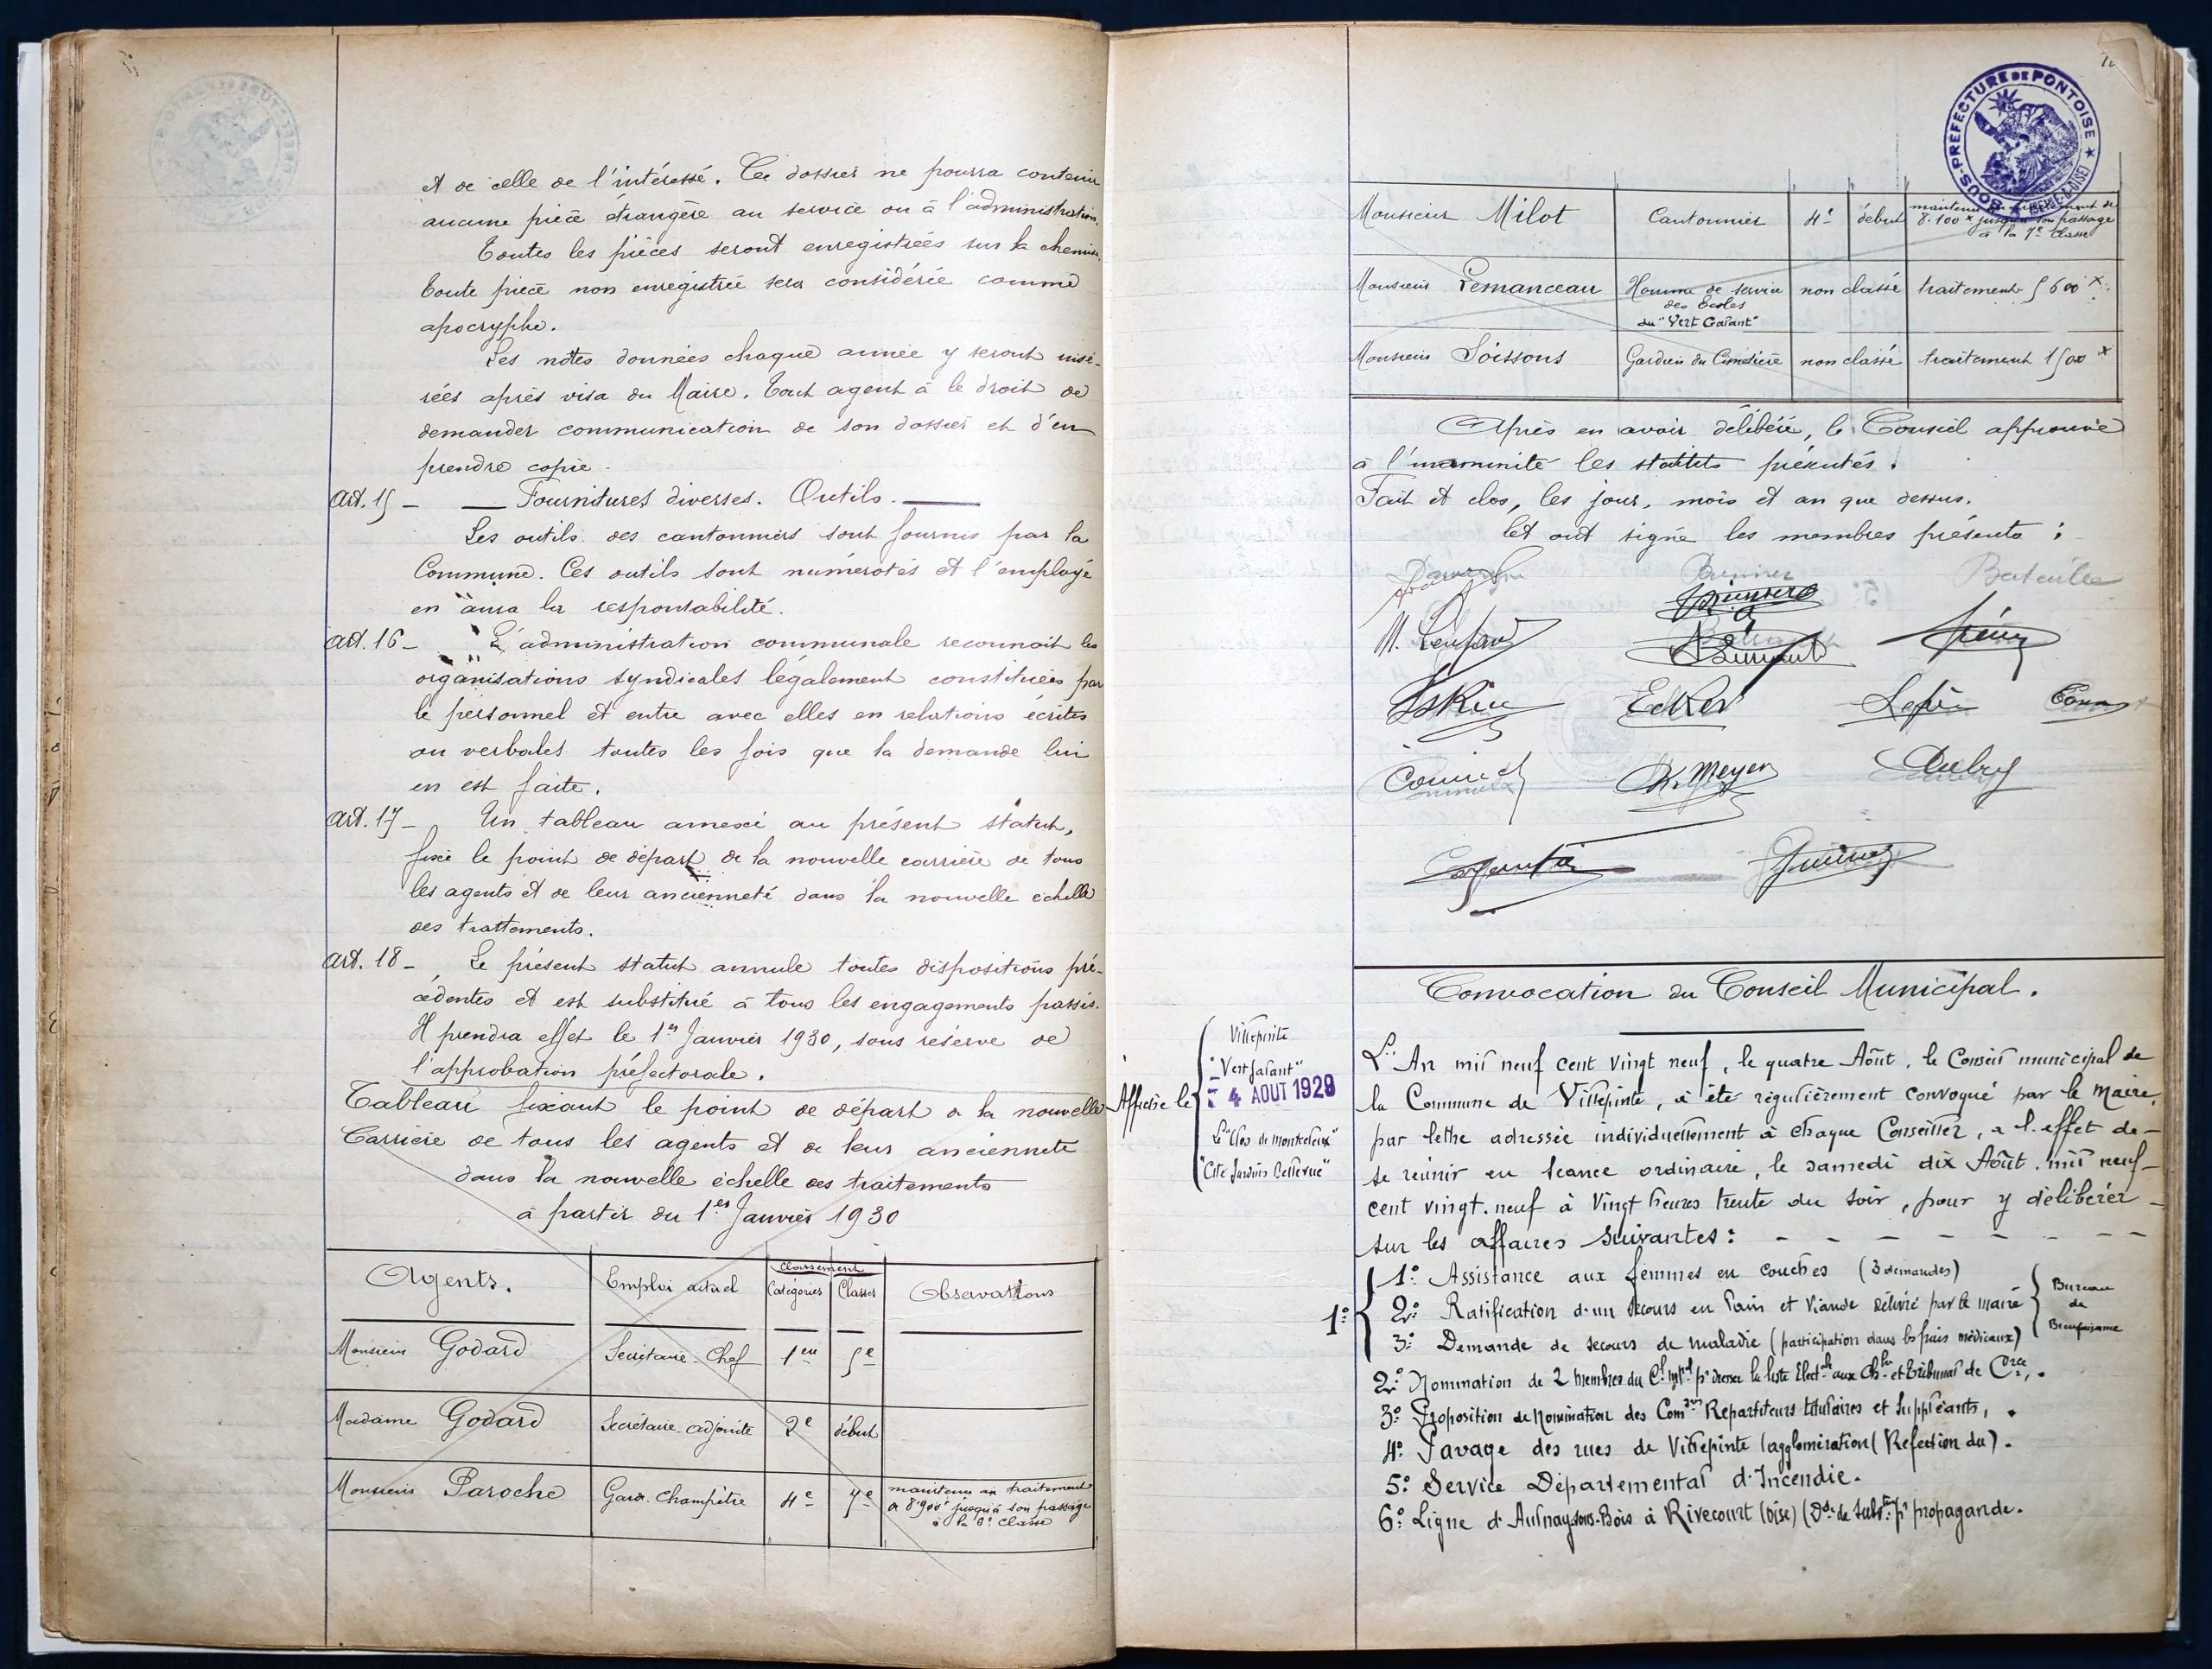 et de celle de l'intéressé. Ce dossier ne pourra contenir
aucune pièce étrangère au service ou à l'administration.
Toutes les pièces seront enregistrées sur la chemise.
Toute pièce non enregistrée sera considérée comme
apocryphe.
Les notes données chaque année y seront insé-
rées après visa du Maire. Tout agent à le droit de
demander communication de son dossier et d'en
prendre copie.
Art. 15 - Fournitures diverses. Outils.
Les outils des cantonniers sont fournis par la
Commune. Ces outils sont numérotés et l'employé
en aura la responsabilité.
Art. 16 - L'administration communale reconnait les
organisations syndicales légalement constituées par
le personnel et entre avec elles en relations écrites
ou verbales toutes les fois que la demande lui
en est faite.
Art. 17 - Un tableau annexé au présent statut,
fixe le point de départ de la nouvelle carrière de tous
les agents et de leur ancienneté dans la nouvelle échelle
des traitements.
Art. 18 - Le présent statut annule toutes dispositions pré-
cédentes et est substitué à tous les engagements passés.
Il prendra effet le 1er Janvier 1930, sous réserve de
l'approbation préfectorale.
Tableau fixant le point de départ de la nouvelle
Carrière de tous les agents et de leur ancienneté
dans la nouvelle échelle des traitements
à partir du 1er Janvier 1930
Agents. Emploi actuel Classement Observations
Catégories Classes
Monsieur Godard Secrétaire-Chef 1ère 5e
Madame Godard Secrétaire-adjointe 2e début
Monsieur Paroche Garde Champêtre 4e 7e maintenu au traitement
de 8.900 f jusqu'à son passage
à la 6e classe
SOUS-PREFECTURE DE PONTOISE
(SEINE-&-OISE)
Monsieur Milot Cantonnier 4e début maintenu au traitement de
8.100 f jusqu'à son passage
à la 7e classe
Monsieur Lemanceau Homme de service non classé traitement 5600 f
des Ecoles
du "Vert Galant"
Monsieur Soissons Gardien du Cimetière non classé traitement 1500 f
Après en avoir délibéré, le Conseil approuve
à l'unanimité les statuts présentés.
Fait et clos, les jour, mois et an que dessus.
Et ont signé les membres présents :
Bataille
Ecker
K. Meyer Aubry
Convocation du Conseil Municipal.
Affiché le
Villepinte
"Vert Galant"
4 AOUT 1929
"Clos de Montceleux"
"Cité Jardins Bellevue"
L'An mil neuf cent vingt neuf, le quatre Août, le Conseil municipal de
la Commune de Villepinte, a été régulièrement convoqué par le Maire,
par lettre adressée individuellement à chaque Conseiller, a l'effet de -
se réunir en Séance ordinaire, le samedi dix Août mil neuf -
cent vingt-neuf à Vingt heures trente du soir, pour y délibérer -
sur les affaires Suivantes : - - - - - - - -
1° 1° Assistance aux femmes en couches (3 demandes)
2° Ratification d'un secours en Pain et Viande délivré par le maire
3° Demande de secours de maladie (participation dans les frais médicaux)
Bureau
de
Bienfaisance
2° Nomination de 2 membres du Cl mpal pr dresser la liste Electle aux Chbre et Tribunal de Cerce.
3° Proposition de Nomination des Comres Répartiteurs titulaires et suppléants.
4° Pavage des rues de Villepinte (agglomération (Réfection du).
5° Service Départemental d'Incendie.
6° Ligne d'Aulnay-sous-Bois à Rivecourt (Oise) (Dde de Subvon pr propagande.